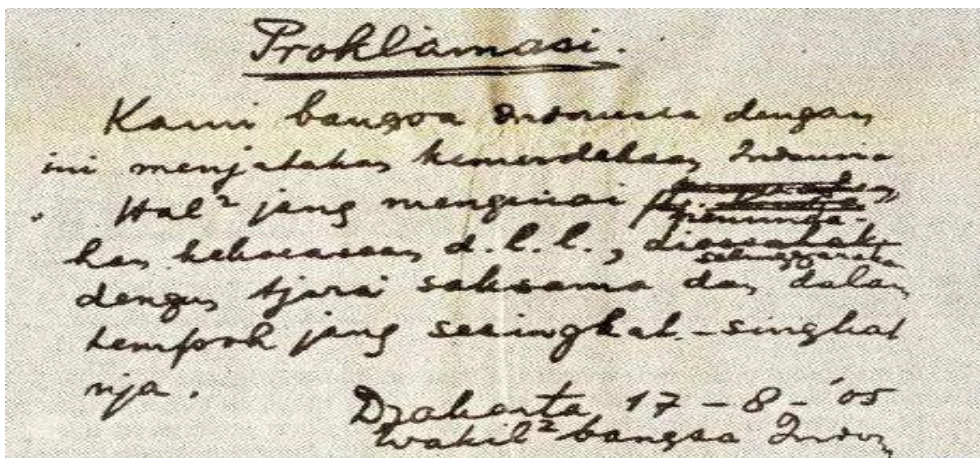 Proklamasi.
Kami bangsa Indonesia dengan
ini menjatakan kemerdekaan Indonesia
Hal² jang mengenai
peminda-
han kekoeasaan d.l.l.,
diselenggarakan
dengan tjara saksama dan dalam
tempoh jang sesingkat-singkat
nja.
Djakarta 17 - 8 - '05
Wakil² bangsa Indon